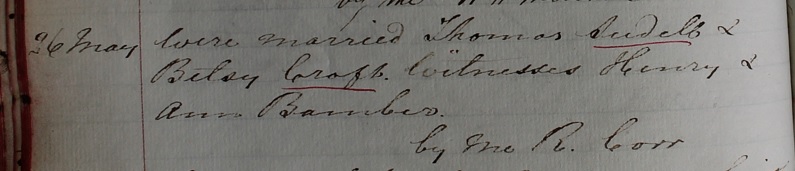 by me
26 May Were married Thomas Sudell &
Betsy Croft. Witnesses Henry &
Ann Bamber.
by me R. Corr